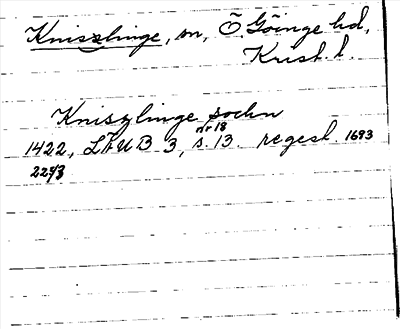 Knisslinge, sn, Ö Göinge hd,
Krist. l.
Kniszlinge sockn
nr 18
1422, LÄUB 3, s. 13. regest 1693
22/3